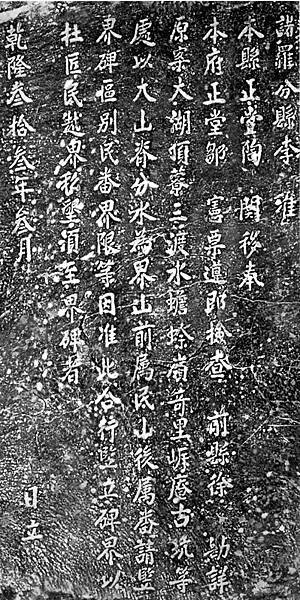 諸羅分縣李 准
本縣正堂陶 関移奉
本府正堂鄒 憲票遵即檢查 前縣徐 勘詳
原案大湖頂藔三渡水蟾蜍嶺奇里岸庵古坑等
處以大山脊分水為界山前属民山後属番請豎
界碑區别民番界限等因准此合行豎立碑界以
杜匠民越界移墾須至界碑者
乾隆叁拾叁年叁月 日立